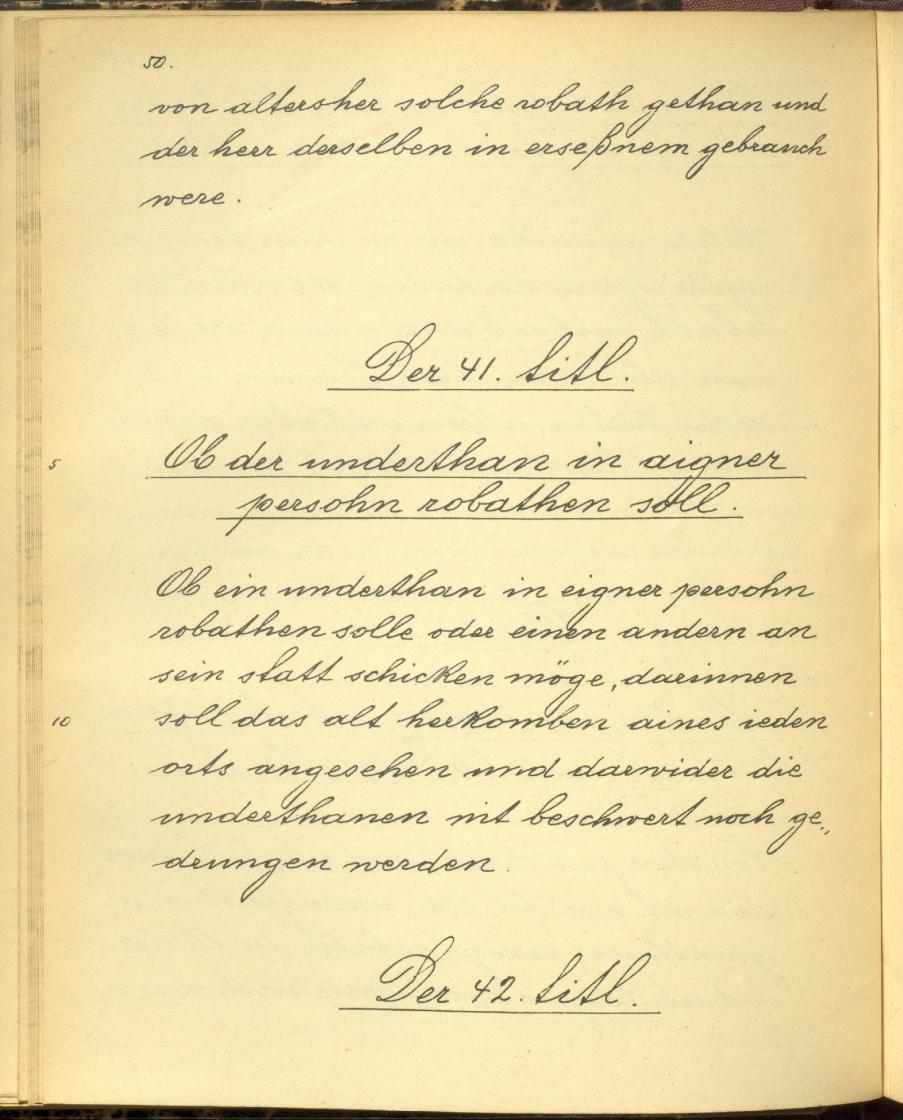 50.
von altersher solche robath gethan und
der herr derselben in erseßnem gebrauch
were.
Der 41. titl.
5 Ob der underthan in aigner
persohn robathen soll.
Ob ein underthan in eigner persohn
robathen solle oder einen andern an
sein statt schicken möge, darinnen
10 soll das alt herkomben aines ieden
orts angesehen und darwider die
underthanen nit beschwert noch ge„
drungen werden.
Der 42. titl.